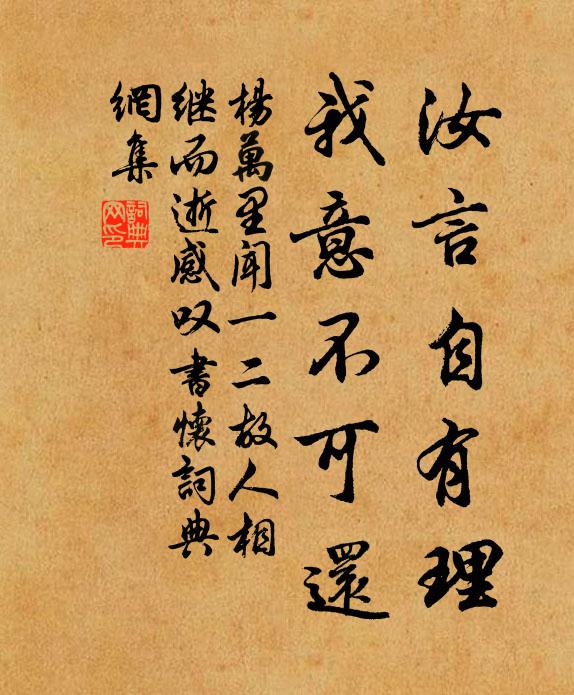 汝言自有理
我意不可還
楊萬里聞一二故人相
继而逝感叹書懷詞典
網集
詞典
网印